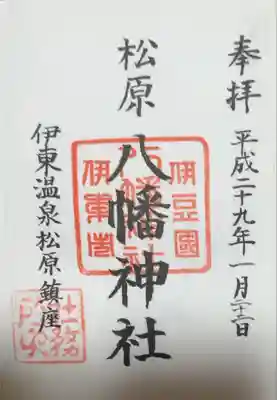 奉拝
平成二十九年一月
松原
八幡神社
伊豆國
伊東市
伊東温泉松原鎮座
社務